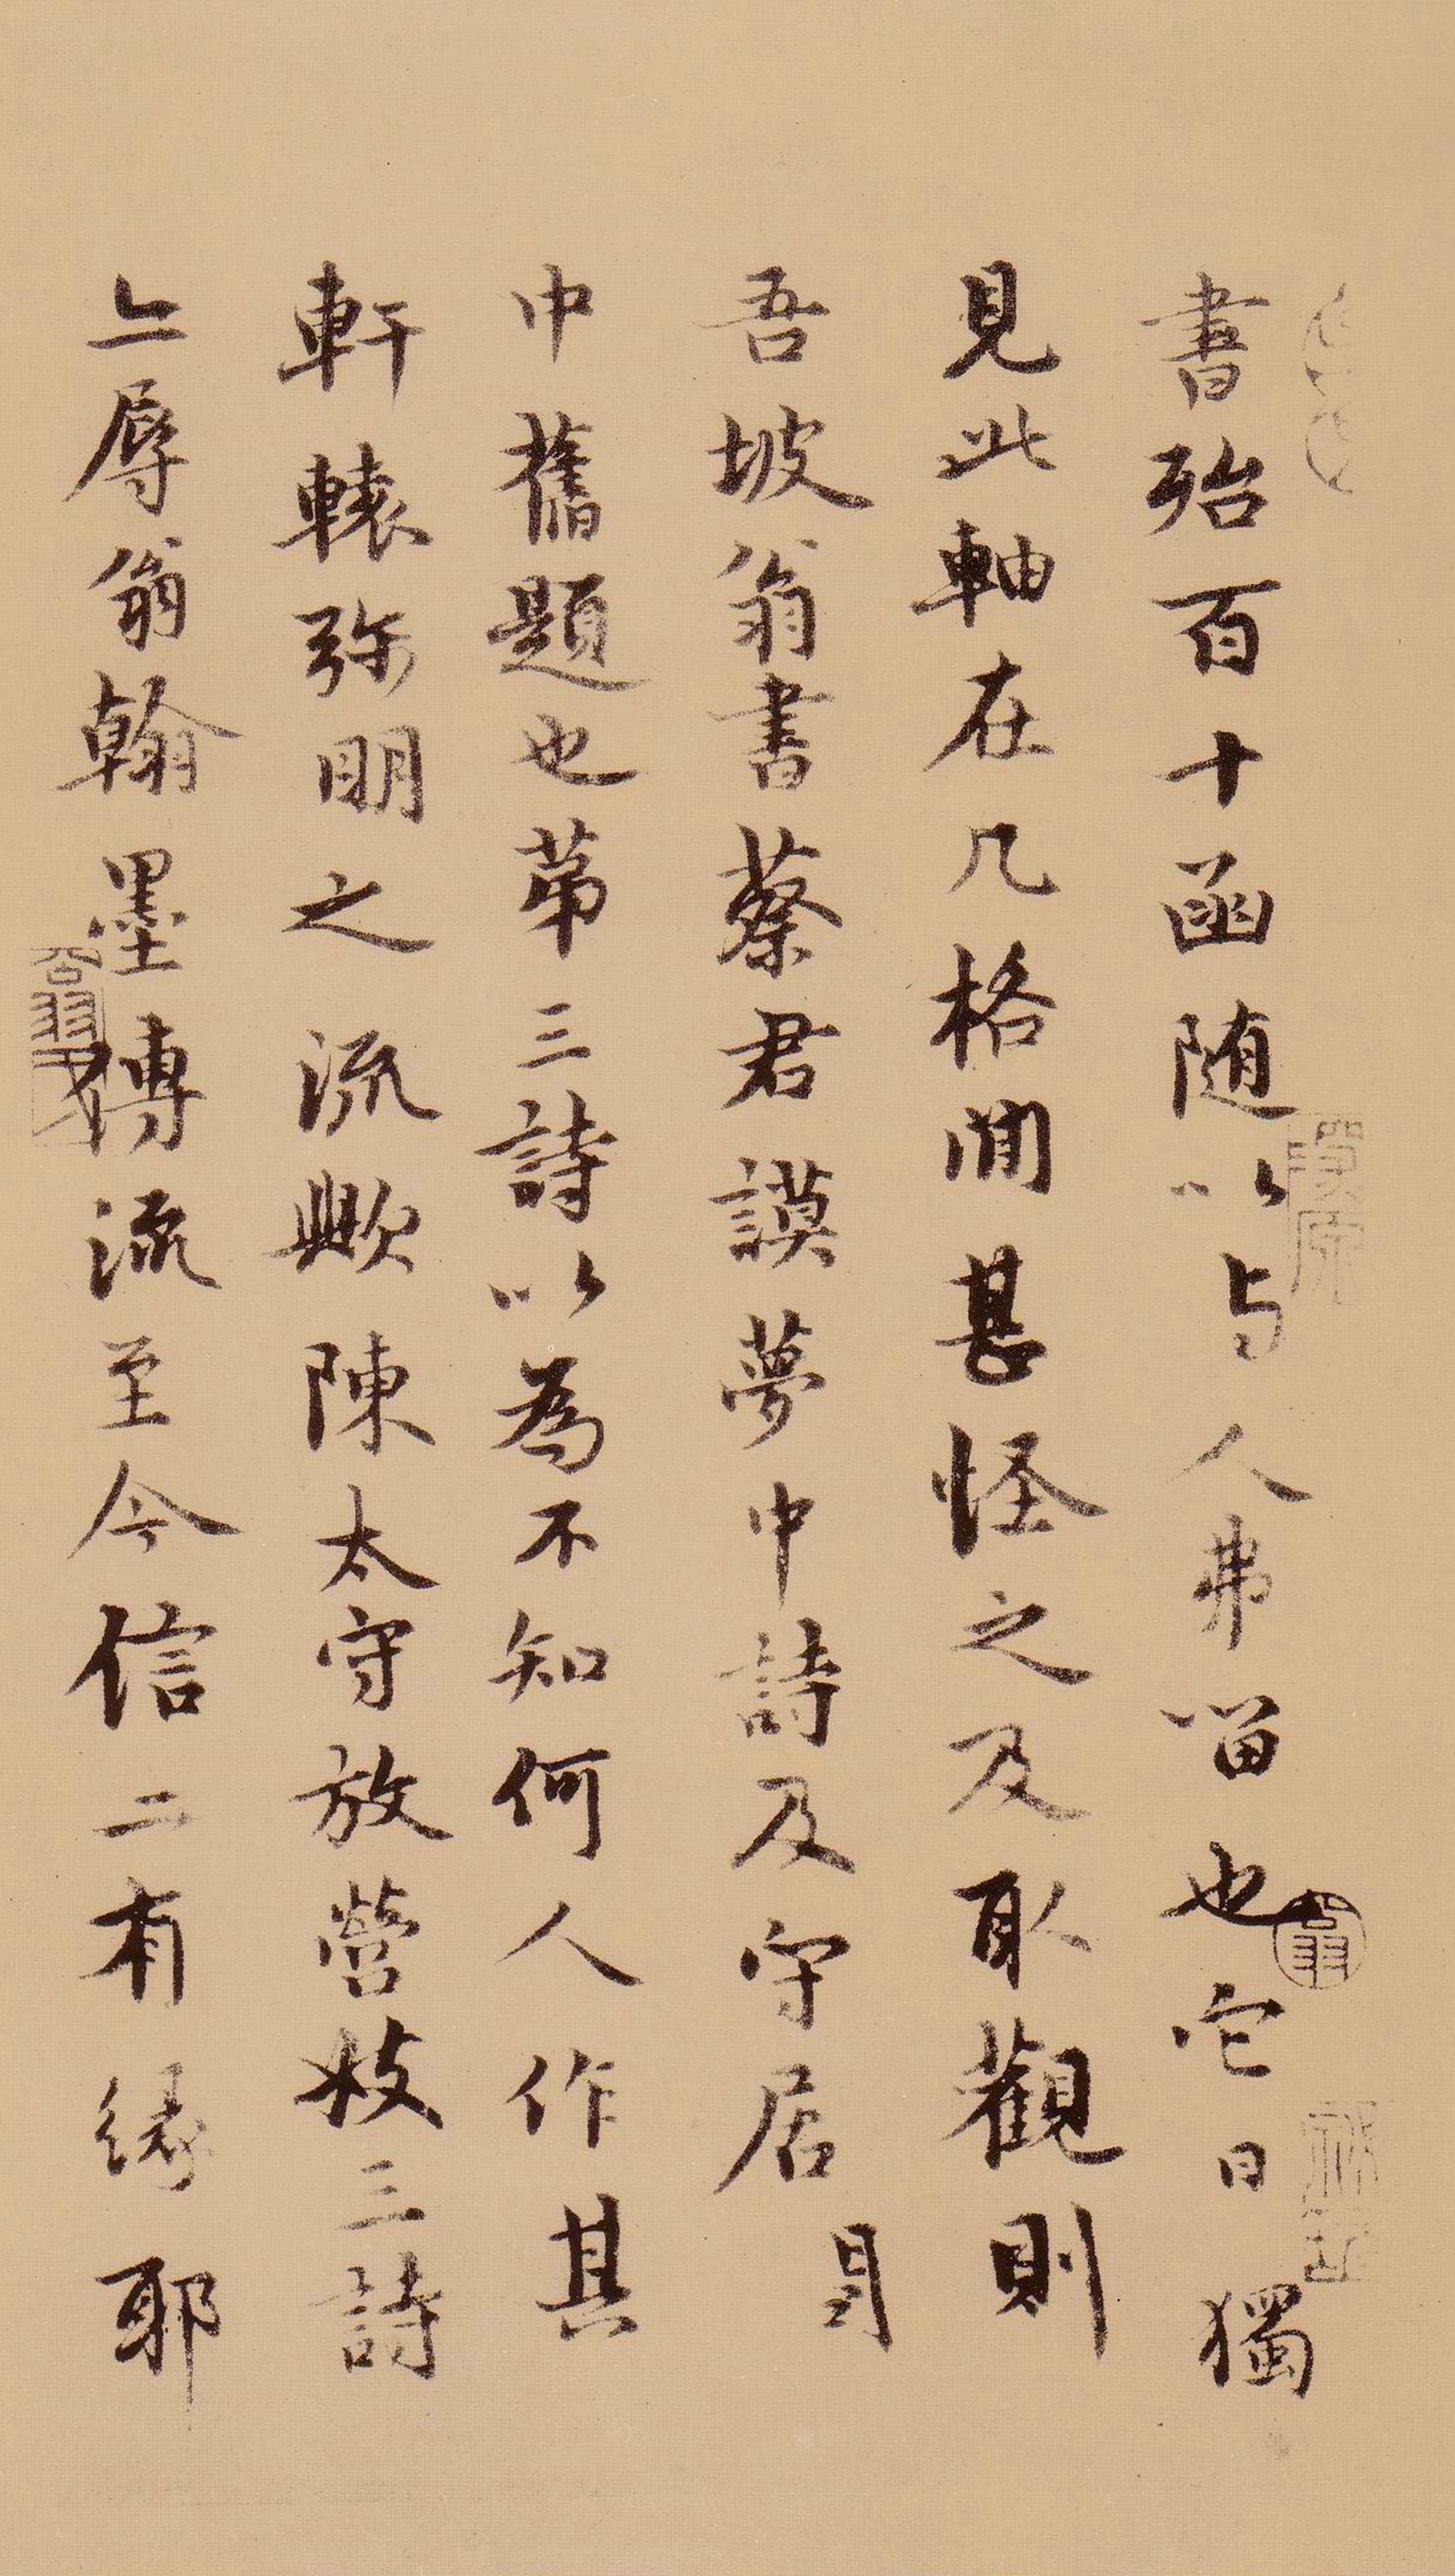 書殆百十函随以与人弗留也它日獨
見此軸在几格間甚怪之及取觀則
吾坡翁書蔡君謨夢中詩及守居閣
中舊題也苐三詩以為不知何人作其
軒轅弥明之流歟陳太守放營妓三詩
亦辱翁翰墨轉流至今信亦有緣耶